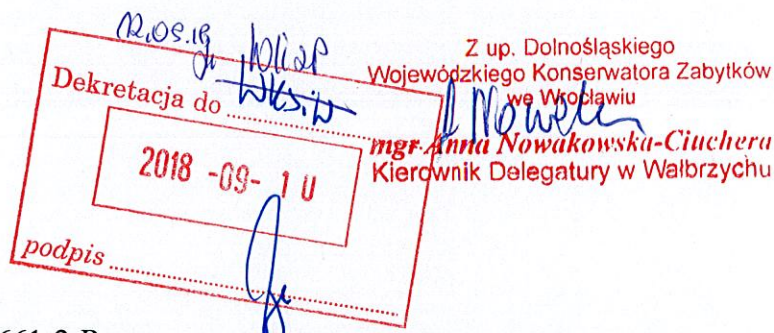 12.09.18
Dekretacja do
2018 -09- 10
podpis
Z up. Dolnośląskiego
Wojewódzkiego Konserwatora Zabytków
we Wrocławiu
mgr Anna Nowakowska-Ciuchera
Kierownik Delegatury w Wałbrzychu